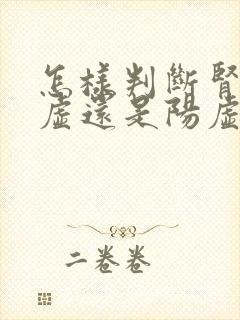 怎樣判斷腎
虛還是陽虛
二卷卷